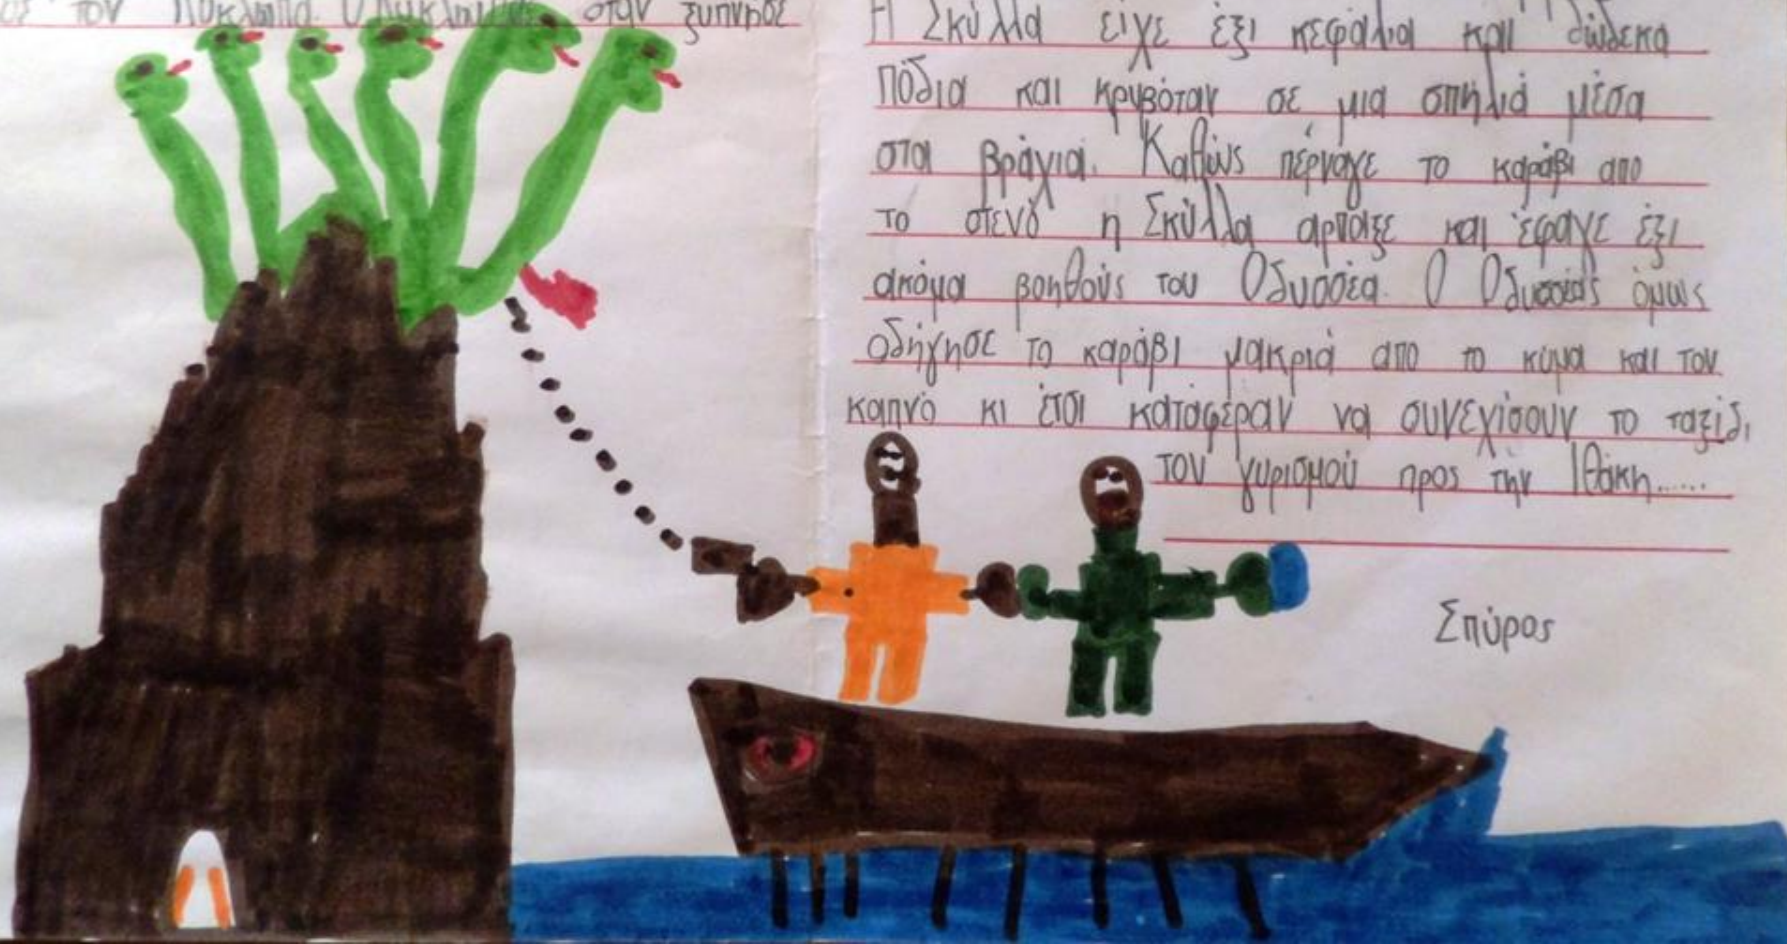 τον Κύκλωπα. Ο Κύκλωπας όταν ξύπνησε
Η Σκύλλα είχε έξι κεφάλια και δώδεκα
πόδια και κρυβόταν σε μια σπηλιά μέσα
στα βράχια. Καθώς πέρναγε το καράβι απο
το στενό η Σκύλλα αρπαξε και έφαγε έξι
ακόμα βοηθούς του Οδυσσέα. Ο Οδυσσέας όμως
οδήγησε το καράβι μακριά απο το κύμα και τον
καπνό κι έτσι καταφέραν να συνεχίσουν το ταξίδι
του γυρισμού προς την Ιθάκη......
Σπύρος